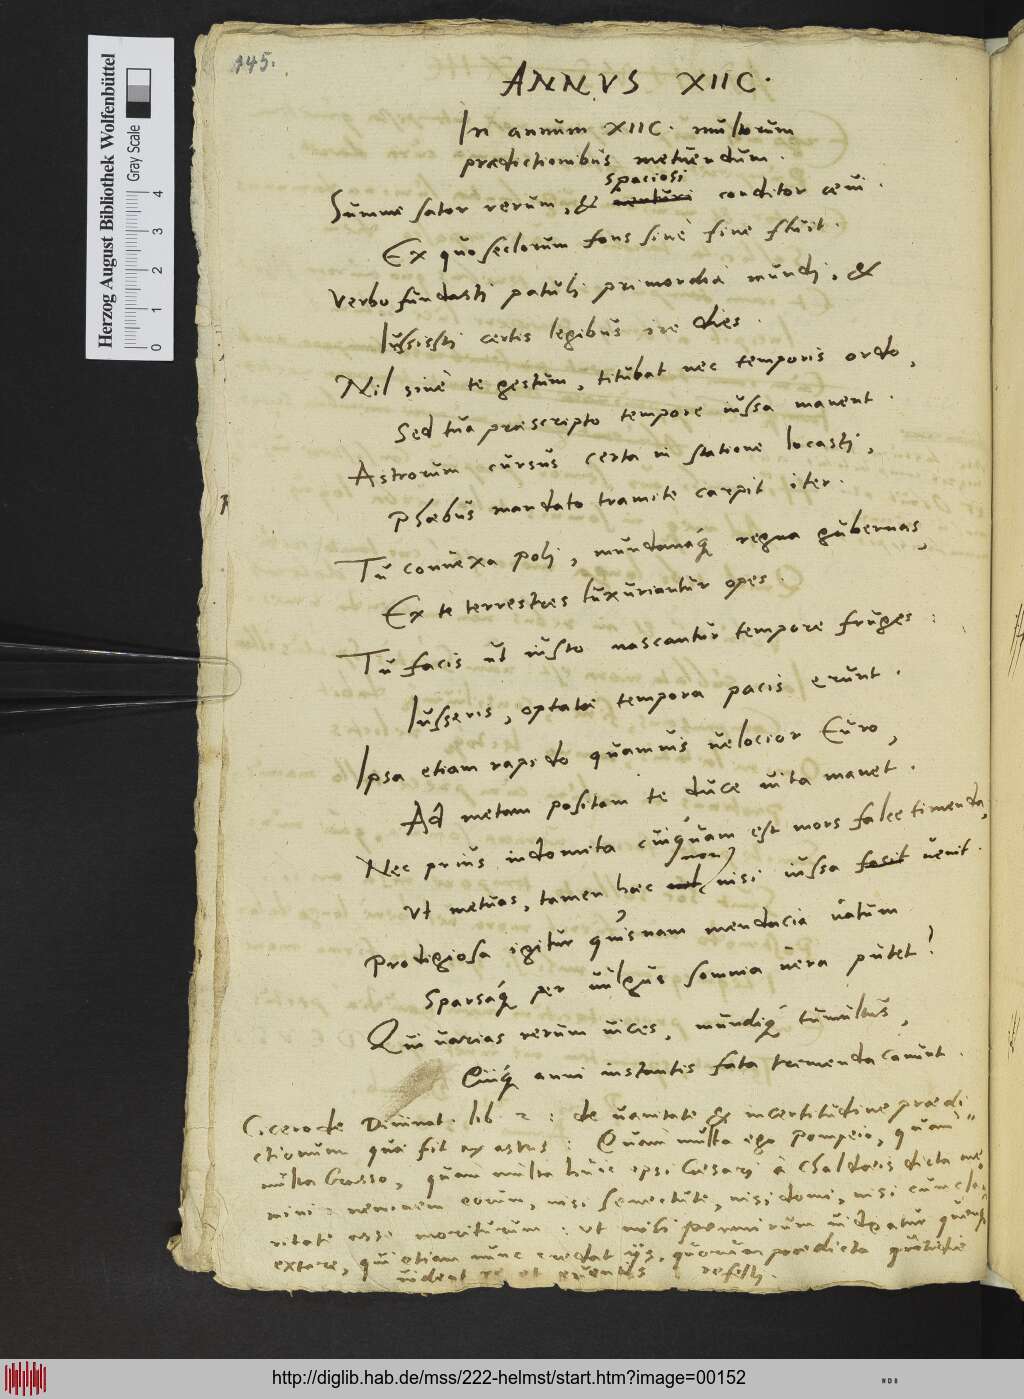 145.
ANNVS XIIC.
In annum XIIC. multorum
prædictionibus metuendum.
spaciosi
Summe sator rerum, & venturi conditor æui.
Ex quo seclorum fons sine fine fluit.
Verbo fundasti patuli primordia mundi, &
Iussisti certis legibus ire dies.
Nil sine te gestum, titubat nec temporis ordo,
Sed tua præscripto tempore iussa manent.
Astrorum cursus certa in statione locasti,
Phœbus mandato tramite carpit iter.
Tu conuexa poli, mundanaq́ regna gubernas,
Ex te terrestres luxuriantur opes.
Tu facis ut iusto nascantur tempore fruges:
Iusseris, optatæ tempora pacis erunt.
Ipsa etiam rapido quamuis uelocior Euro,
Ad metam positam te duce uita manet.
Nec prius indomita cuiquam est mors falce timenda,
non
Vt metuas, tamen hæc nisi iussa fasit uenit.
Prodigiosa igitur quisnam mendacia uatum
Sparsaq́ per uulgus somnia uera putet?
Qui uarias rerum uices, mundiq́ tumultus,
Quiq́ anni instantis fata tremenda canunt.
Cicero de Diuinat. lib. 2: de uanitate & incertitudine prædi
ctionum quæ fit ex astris: Quam multa ego Pompeio, quam
multa Crasso, quam multa huic ipsi Cæsari à Chaldæis dicta me
mini: neminem eorum, nisi senectute, nisi domi, nisi cum cla
ritate esse moriturum: ut mihi permirum uideatur quenq́
extare, qui etiam nunc credat ijs, quorum prædicta quotidie
uideat re et euentis refelli.
Herzog August Bibliothek Wolfenbüttel
Gray Scale
0 1 2 3 4
http://diglib.hab.de/mss/222-helmst/start.htm?image=00152